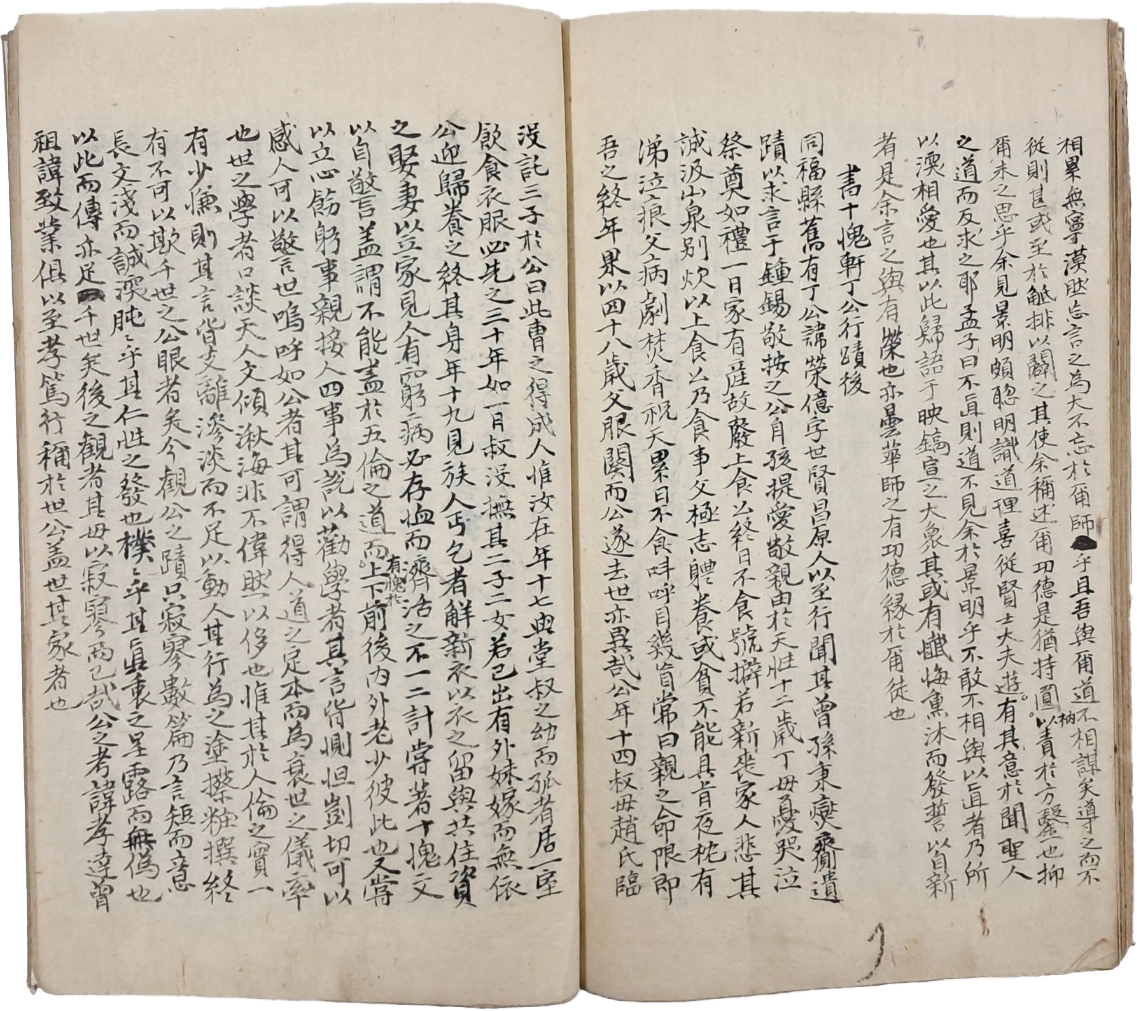 相累無寧漠然忘言之為大不忘於爾師乎且吾與爾道不相謀矣導之而不
從則甚或至於觝排以闢之其使余稱述爾功德是猶持圓枘以責於方鑿也抑
爾未之思乎余見景明頗聰明識道理喜從賢士大夫遊有其意於聞聖人
之道而反求之耶孟子曰不直則道不見余於景明乎不敢不相與以直者乃所
以深相愛也其以此歸語于映鎬宣之大衆其或有懺悔熏沐而發誓以自新
者是余言之與有榮也亦曇華師之有功德緣於爾徒也
書十愧軒丁公行蹟後
同福縣舊有丁公諱榮億字世賢昌原人以至行聞其曾孫秉燮齎遺
蹟以求言于鍾錫敬按之公自孩提愛敬親由於天性十二歲丁母憂哭泣
祭奠如禮一日家有產故廢上食公終日不食號擗若新喪家人悲其
誠汲山泉別炊以上食公乃食事父極志軆養或貧不能具旨夜枕有
涕泣痕父病劇焚香祝天累日不食呌呼目幾盲常曰親之命限即
吾之終年果以四十八歲父服闋而公遂去世亦異哉公年十四叔母趙氏臨
沒託三子於公曰此曹之得成人惟汝在年十七與堂叔之幼而孤者居一室
飲食衣服必先之三十年如一日叔沒撫其二子二女若己出有外妹嫁而無依
公迎歸養之終其身年十九見族人丐乞者解新衣以衣之留與共住資
之娶妻以立家見人有窮病必存恤而齊活之不一二計嘗著十愧文
以自警言盖謂不能盡於五倫之道而有愧於上下前後內外老少彼此也又嘗
以立心飭躬事親接人四事為說以勸學者其言皆惻怛剴切可以
感人可以警世嗚呼如公者其可謂得人道之足本而為衰世之儀率
也世之學者口談天人文傾湫海非不偉然以侈也惟其於人倫之實一
有少慊則其言皆支離滲淡而不足以動人其行為之塗搽粧撰終
有不可以欺千世之公眼者矣今觀公之蹟只寂寥數篇乃言短而意
長文淺而誠深肫肫乎其仁性之發也樸樸乎其眞衷之呈露而無僞也
以此而傳亦足千世矣後之觀者其毋以寂寥而已哉公之考諱孝達曾
祖諱致業俱以至孝篤行稱於世公盖世其家者也